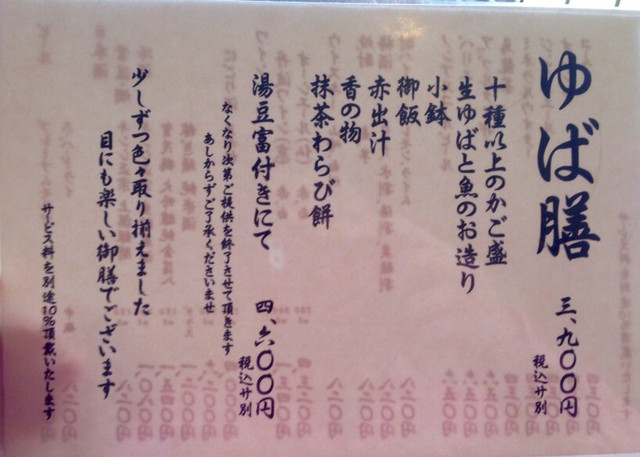 ゆば膳
三、九〇〇円
税込サ別
十種以上のかご盛
生ゆばと魚のお造り
小鉢
御飯
赤出汁
香の物
抹茶わらび餅
湯豆富付きにて
四、六〇〇円
税込サ別
なくなり次第ご提供を終了させて頂きます
あしからずご了承くださいませ
少しずつ色々取り揃えました
目にも楽しい御膳でございます
サービス料を別途10%頂戴いたします